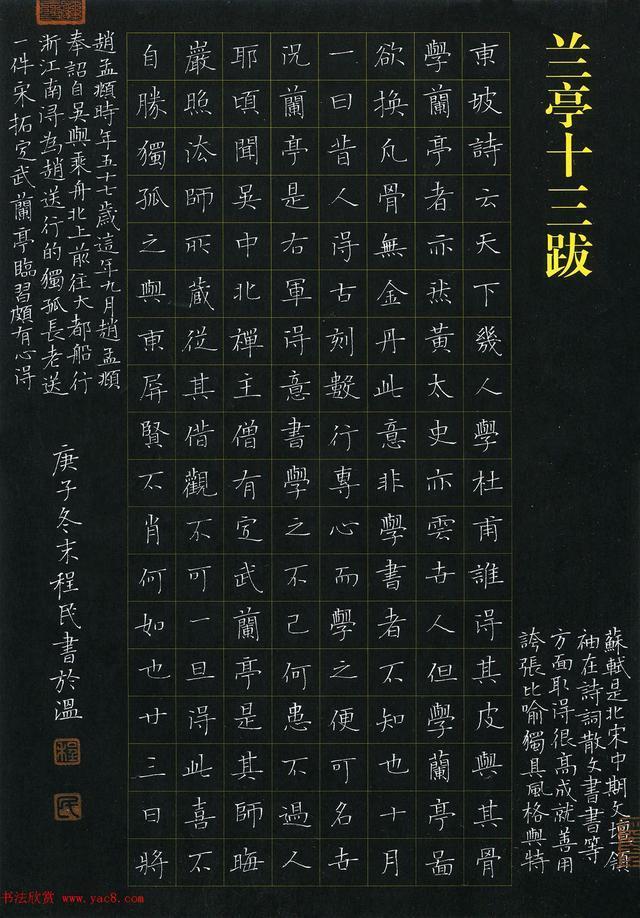 兰亭十三跋
蘇軾是北宋中期文壇領
袖在詩詞散文書書等
方面取得很高成就善用
誇張比喻獨具風格與特
東坡詩云天下幾人學杜甫誰得其皮與其骨
學蘭亭者亦然黃太史亦雲世人但學蘭亭面
欲換凡骨無金丹此意非學書者不知也十月
一日昔人得古刻數行專心而學之便可名世
況蘭亭是右軍得意書學之不已何患不過人
耶頃聞吳中北禪主僧有定武蘭亭是其師晦
嚴照法師所藏從其借觀不可一旦得此喜不
自勝獨孤之與東屏賢不肖何如也廿三日將
趙孟頫時年五十七歲這年九月趙孟頫
奉詔自吳興乘舟北上前往大都船行
浙江南潯為趙送行的獨孤長老送
一件宋拓定武蘭亭臨習頗有心得
庚子冬末程民書於溫
程
民
书法欣赏 www.yac8.com